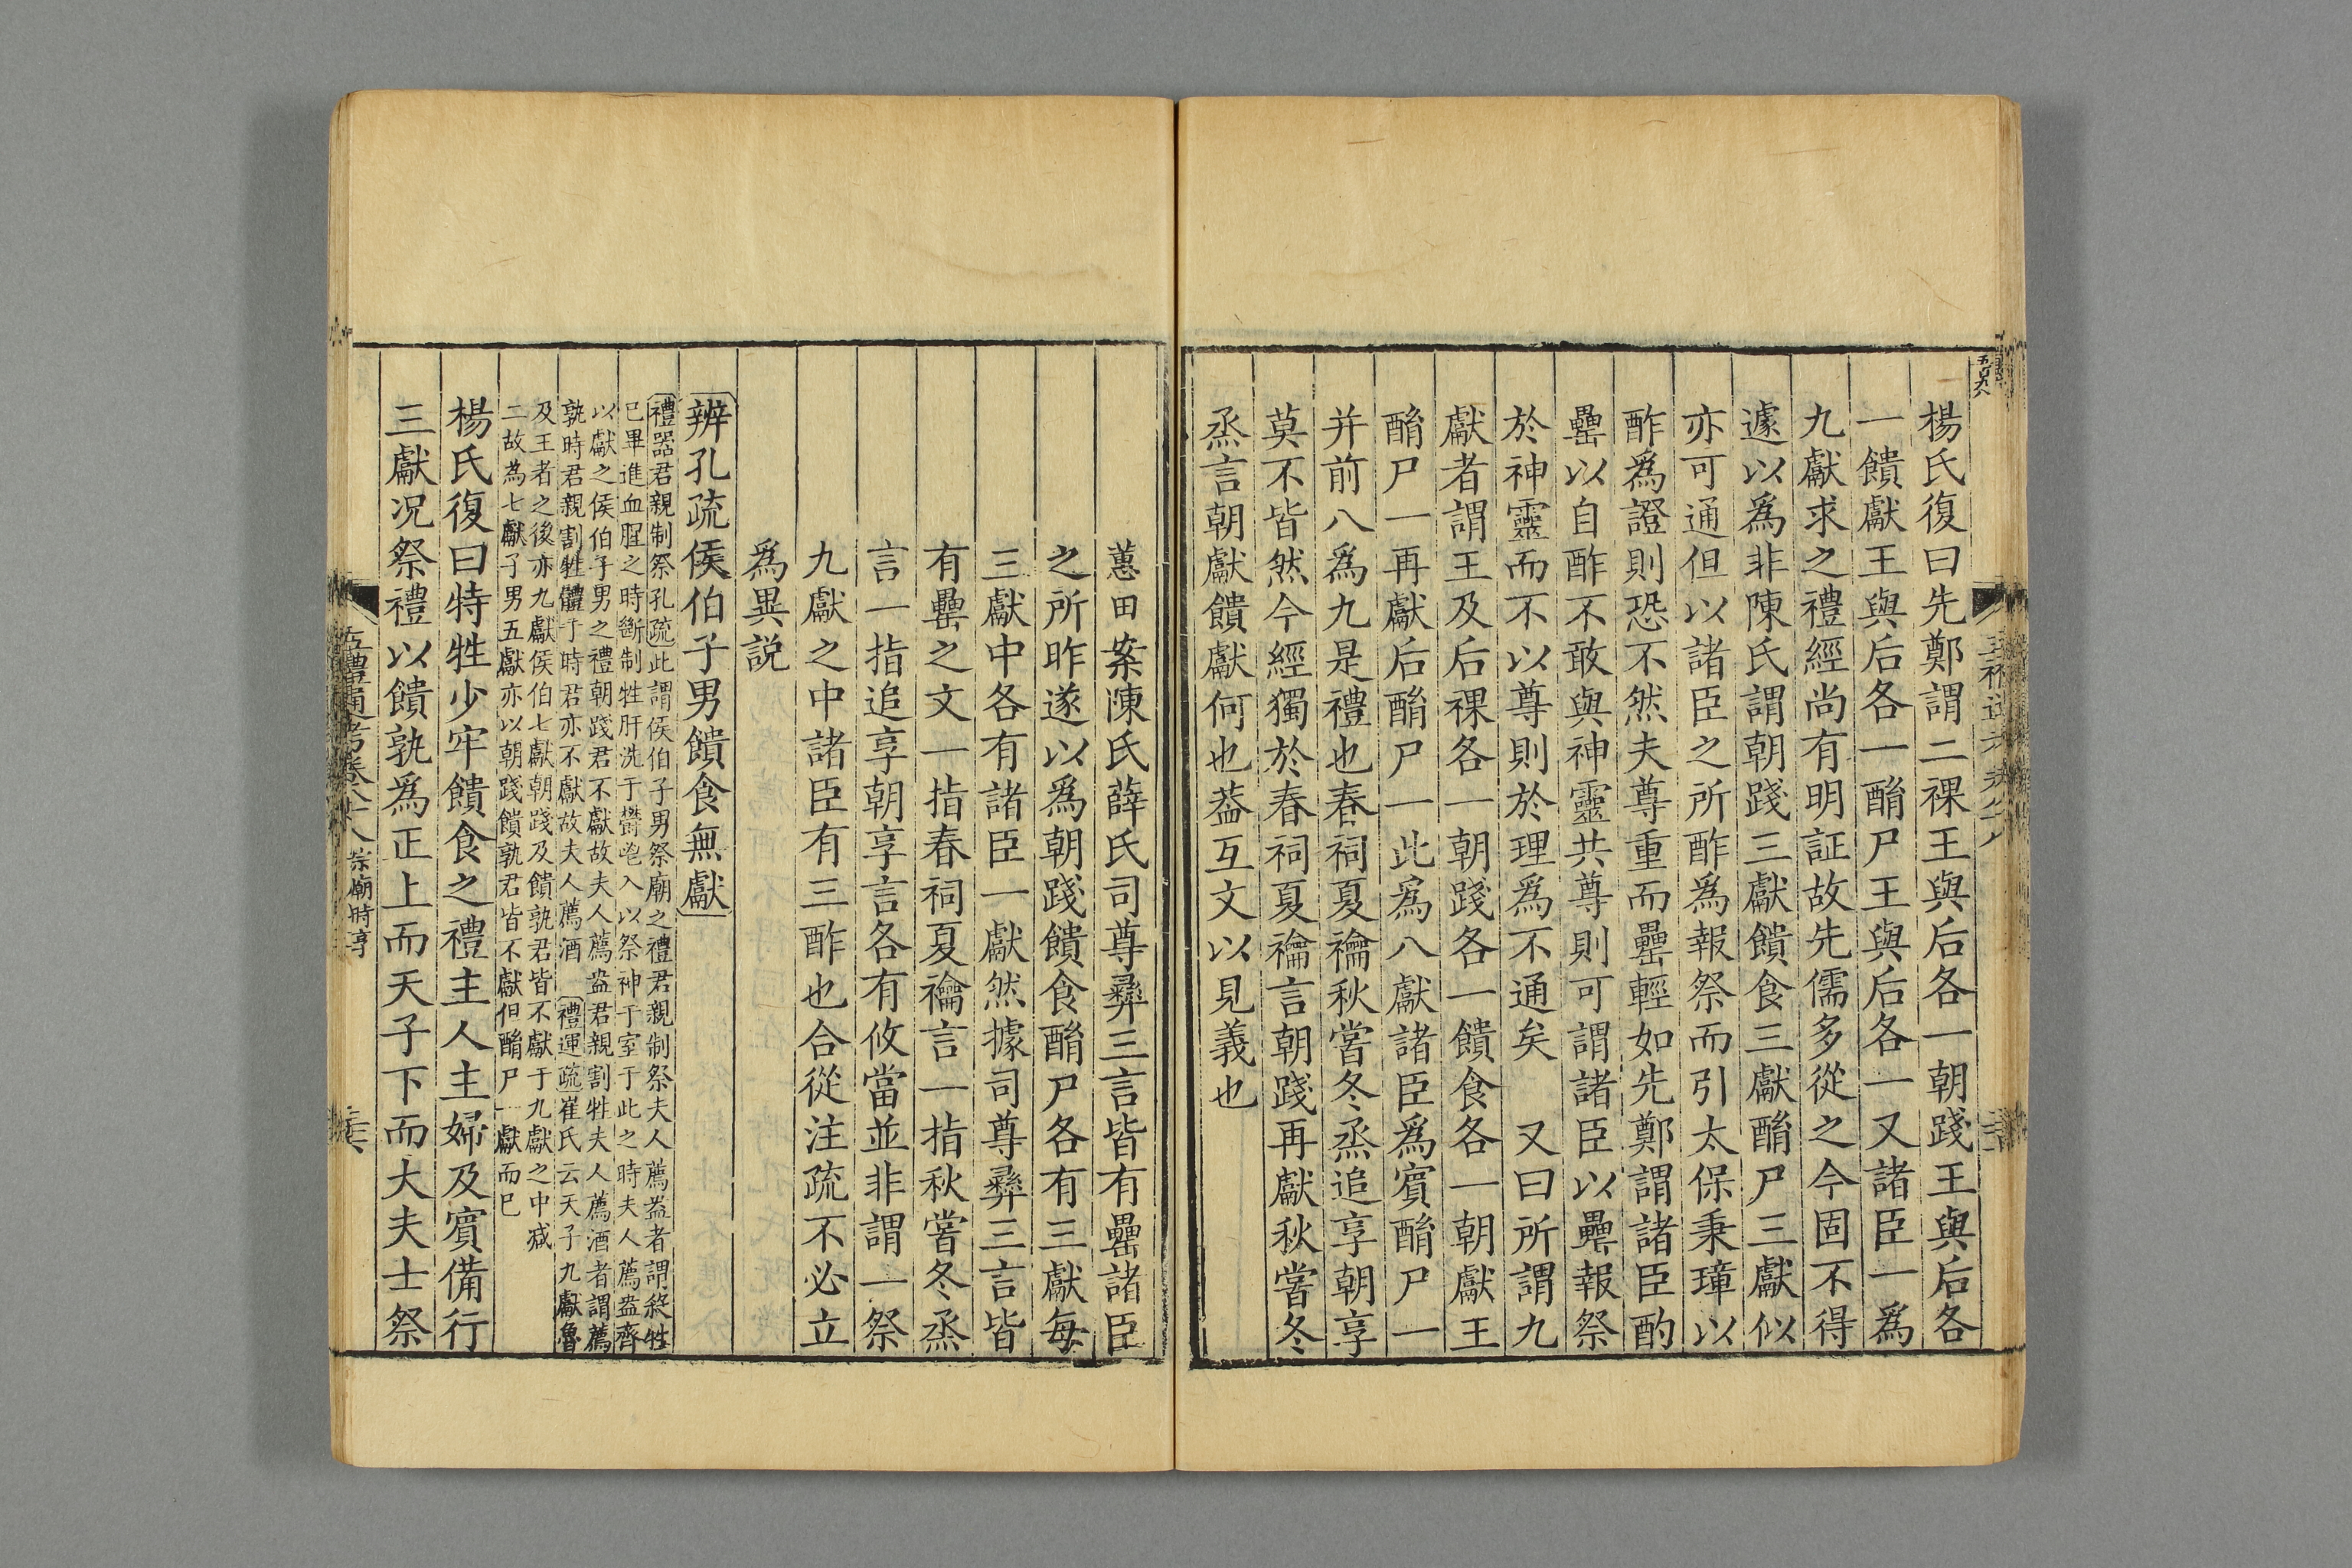 楊氏復曰先鄭謂二祼王與后各一朝踐王與后各
一饋獻王與后各一酳尸王與后各一又諸臣一爲
九獻求之禮經尚有明証故先儒多從之今固不得
遽以爲非陳氏謂朝踐三獻饋食三獻酳尸三獻似
亦可通但以諸臣之所酢爲報祭而引太保秉璋以
酢爲證則恐不然夫尊重而罍輕如先鄭謂諸臣酌
罍以自酢不敢與神靈共尊則可謂諸臣以罍報祭
於神靈而不以尊則於理爲不通矣　又曰所謂九
獻者謂王及后祼各一朝踐各一饋食各一朝獻王
酳尸一再獻后酳尸一此爲八獻諸臣爲賓酳尸一
并前八爲九是禮也春祠夏禴秋嘗冬烝追享朝享
莫不皆然今經獨於春祠夏禴言朝踐再獻秋嘗冬
烝言朝獻饋獻何也葢互文以見義也
蕙田案陳氏薛氏司尊彝三言皆有罍諸臣
之所昨遂以爲朝踐饋食酳尸各有三獻每
三獻中各有諸臣一獻然據司尊彝三言皆
有罍之文一指春祠夏禴言一指秋嘗冬烝
言一指追享朝享言各有攸當並非謂一祭
九獻之中諸臣有三酢也合從注疏不必立
爲異説
辨孔疏侯伯子男饋食無獻
禮器君親制祭孔疏此謂侯伯子男祭廟之禮君親制祭夫人薦盎者謂殺牲
已畢進血腥之時斷制牲肝洗于鬱鬯入以祭神于室于此之時夫人薦盎齊
以獻之侯伯子男之禮朝踐君不獻故夫人薦盎君親割牲夫人薦酒者謂薦
孰時君親割牲體于時君亦不獻故夫人薦酒　禮運疏崔氏云天子九獻魯
及王者之後亦九獻侯伯七獻朝踐及饋孰君皆不獻于九獻之中减
二故為七獻子男五獻亦以朝踐饋孰君皆不獻但酳尸一獻而已
楊氏復曰特牲少牢饋食之禮主人主婦及賓備行
三獻况祭禮以饋孰爲正上而天子下而大夫士祭
五禮通考卷八十八 宗廟時享